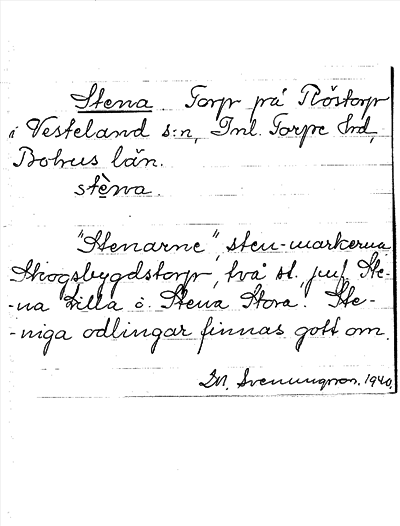 Stena. Torp på Röstorp
i Vesteland s:n, Inl. Torpe hd,
Bohus län.
stèna.
"Stenarne", sten-markerna
Skogsbygdstorp, två st. jmf Ste-
-na Lilla o. Stena Stora. Ste-
-niga odlingar finnas gott om.
Svenungson. 1940.